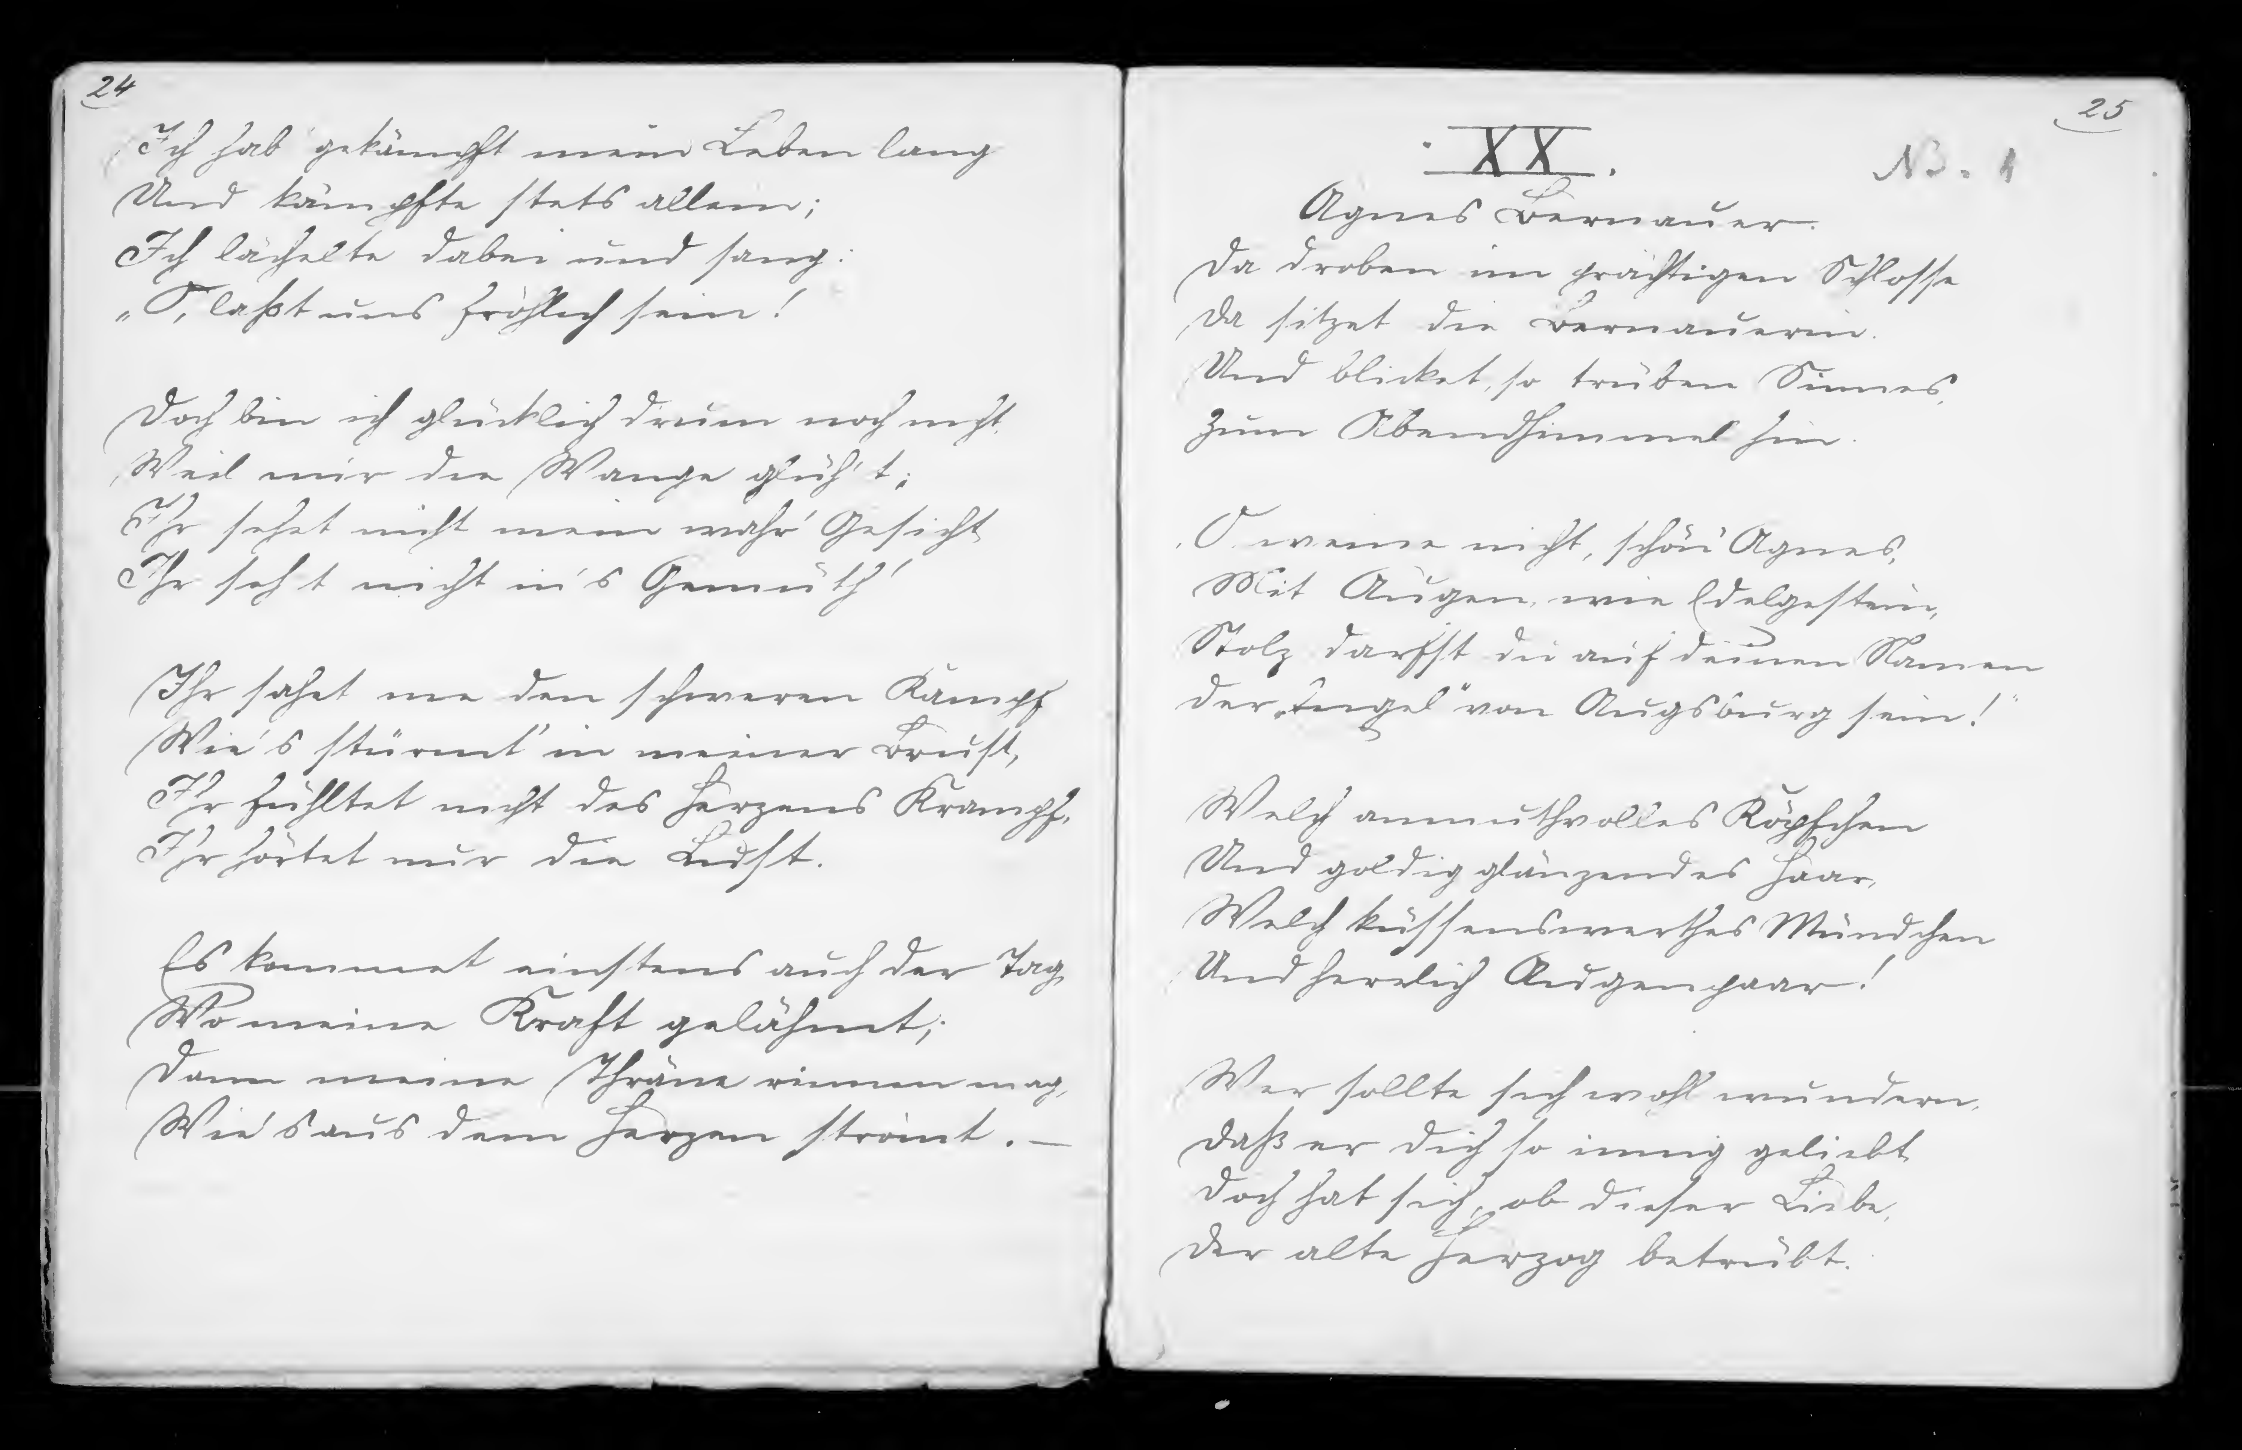 24
Ich hab' gekämpft mein Leben lang
Und kämpfte stets allein;
Ich lächelte dabei und sang:
„O, laßt uns fröhlich sein!
Doch bin ich glücklich drum noch nicht,
Weil mir die Wange glüh't;
Ihr sehet nicht mein wahr' Gesicht
Ihr seh't nicht in's Gemüth!
Ihr sahet nie den schweren Kampf
Wie's stürmt' in meiner Brust,
Ihr fühltet nicht des Herzens Krampf,
Ihr hörtet nur die Lust.
Es kommet einstens auch der Tag,
Wo meine Kraft gelähmt;
Dann meine Thräne rinnen mag,
Wie's aus dem Herzen strömt. —
25
XX.
NB. 1
Agnes Bernauer.
Da droben im prächtigen Schlosse
Da sitzet die Bernauerin.
Und blicket, so trüben Sinnes,
Zum Abendhimmel hin.
„O weine nicht, schön' Agnes,
Mit Augen, wie Edelgestein,
Stolz darfst du auf deinen Namen
Der „Engel" von Augsburg sein!"
Welch anmuthvolles Köpfchen
Und goldig glänzendes Haar,
Welch küssenswerthes Mündchen
Und herrlich Augenpaar!
Wer sollte sich wohl wundern,
Daß er dich so innig geliebt
Doch hat sich, ob dieser Liebe,
Der alte Herzog betrübt.